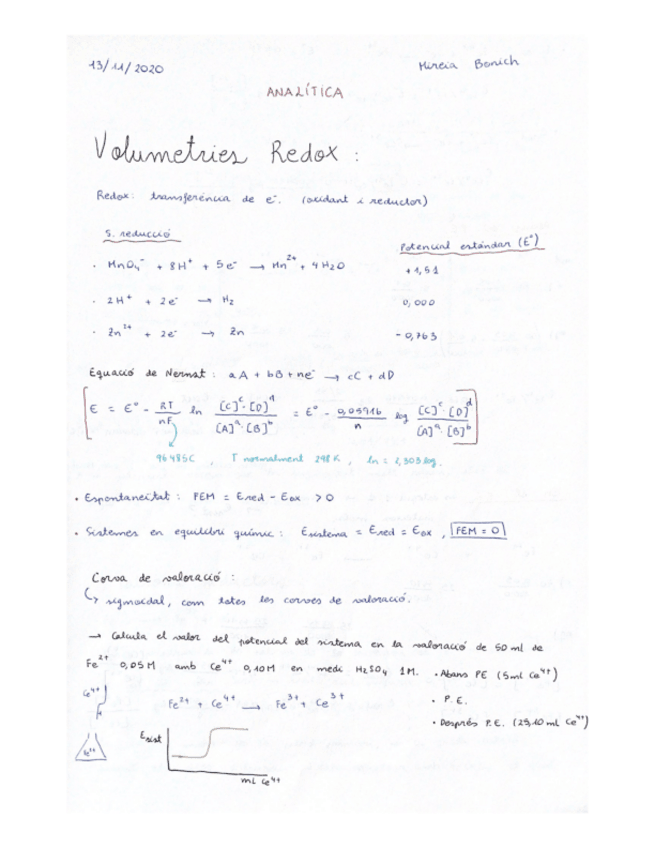 13/11/2020 Mireia Bonich
ANALÍTICA
Volumetries Redox:
Redox: transferència de e⁻. (oxidant i reductor)
S. reducció Potencial estándar (E°)
· MnO₄⁻ + 8H⁺ + 5e⁻ → Mn²⁺ + 4H₂O +1,51
· 2H⁺ + 2e⁻ → H₂ 0,000
· Zn²⁺ + 2e⁻ → Zn -0,763
Equació de Nernst: aA + bB + ne⁻ → cC + dD
E = E° - RT/nF ln [C]ᶜ·[D]ᵈ/[A]ᵃ·[B]ᵇ = E° - 0,05916/n log [C]ᶜ·[D]ᵈ/[A]ᵃ·[B]ᵇ
96485C, T normalment 298K, ln = 2,303 log.
· Espontaneïtat: FEM = Ered - Eox > 0
· Sistemes en equilibri químic: Esistema = Ered = Eox, FEM = 0
Corva de valoració:
↳ sigmoidal, com totes les corves de valoració.
→ Calcula el valor del potencial del sistema en la valoració de 50 ml de
Fe²⁺ 0,05M amb Ce⁴⁺ 0,10M en medi H₂SO₄ 1M. · Abans PE (5ml Ce⁴⁺)
Ce⁴⁺ Fe²⁺ + Ce⁴⁺ → Fe³⁺ + Ce³⁺ · P.E.
· Després P.E. (25,10 ml Ce⁴⁺)
Esist
Fe²⁺
ml Ce⁴⁺